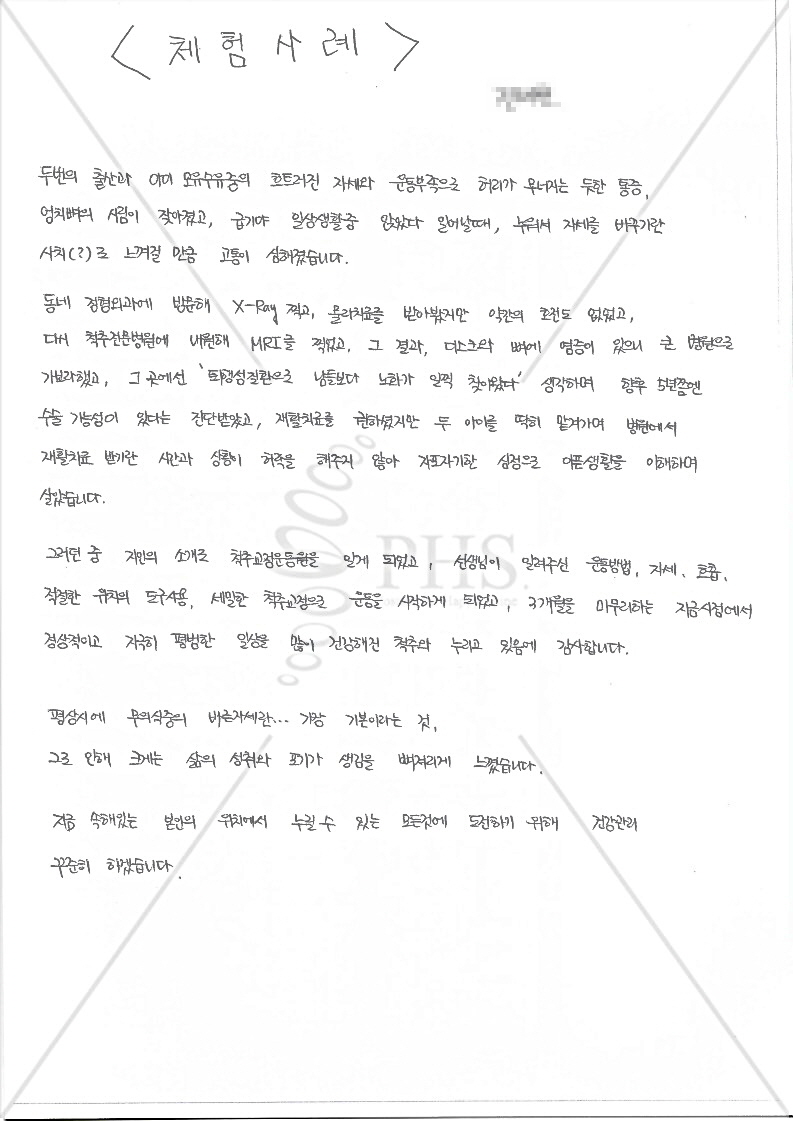 < 체험 사례 >
두번의 출산과 아이 모유수유중의 흐트러진 자세와 운동부족으로 허리가 무너지는 듯한 통증,
엉치뼈의 시림이 잦아졌고, 급기야 일상생활중 앉았다 일어날때, 누워서 자세를 바꾸기란
사치(?)로 느껴질 만큼 고통이 심해졌습니다.
동네 정형외과에 방문해 X-Ray 찍고, 물리치료를 받아봤지만 약간의 호전도 없었고,
다시 척추전문병원에 내원해 MRI를 찍었고, 그 결과, 디스크와 뼈에 염증이 있으니 큰 병원으로
가보라했고, 그 곳에선 '퇴행성질환으로 남들보다 노화가 일찍 찾아왔다' 생각하며 향후 5년쯤엔
수술 가능성이 있다는 진단받았고, 재활치료를 권하셨지만 두 아이를 딱히 맡겨가며 병원에서
재활치료 받기란 시간과 상황이 허락을 해주지 않아 자포자기한 심정으로 아픈생활을 이해하며
살았습니다.
그러던 중 지인의 소개로 척추교정운동원을 알게 되었고, 선생님이 알려주신 운동방법, 자세, 호흡,
적절한 위치의 도구사용, 세밀한 척추교정으로 운동을 시작하게 되었고, 3개월을 마무리하는 지금시점에서
정상적이고 지극히 평범한 일상을 많이 건강해진 척추와 누리고 있음에 감사합니다.
평상시에 무의식중의 바른자세란... 가장 기본이라는 것,
그로 인해 크게는 삶의 성취와 포기가 생김을 뼈저리게 느꼈습니다.
지금 속해있는 본인의 위치에서 누릴 수 있는 모든것에 도전하기 위해 건강관리
꾸준히 하겠습니다.
PHS.